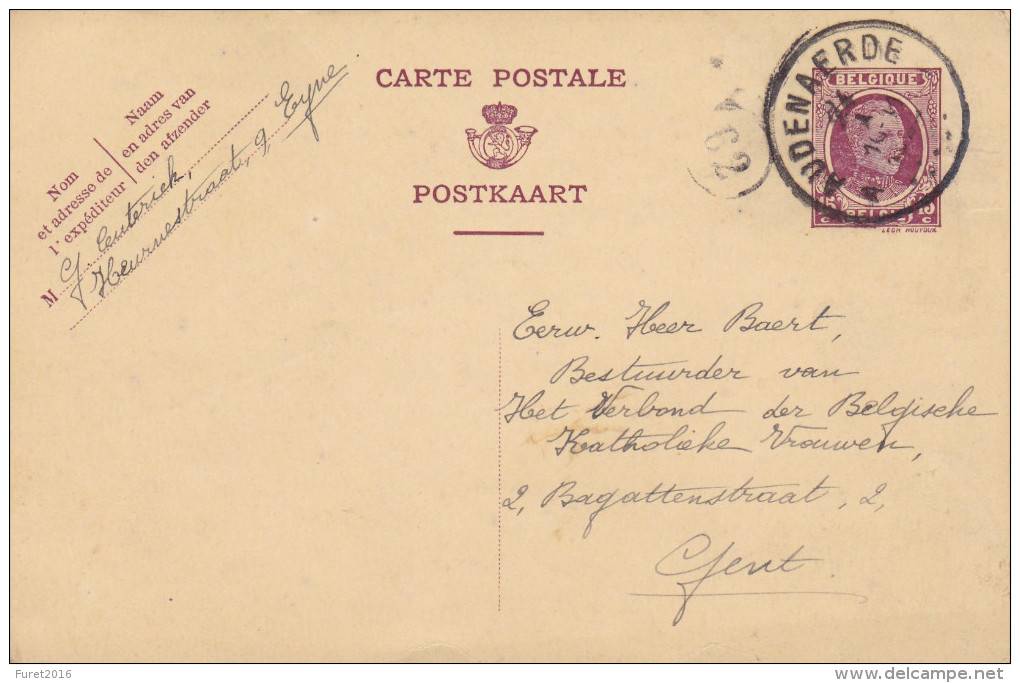 CARTE POSTALE
POSTKAART
Nom
et adresse de
l'expéditeur
Naam
en adres van
den afzender
M G. Centerick,
Heurnestraat, 9, Eyne
62
AUDENAERDE
BELGIQUE
15 c BELGIË 15 c
LÉON HOUYOUX
Eerw. Heer Baert,
Bestuurder van
Het Verbond der Belgische
Katholieke Vrouwen,
2, Bagattenstraat, 2,
Gent.
Furet2016
delcampe.net